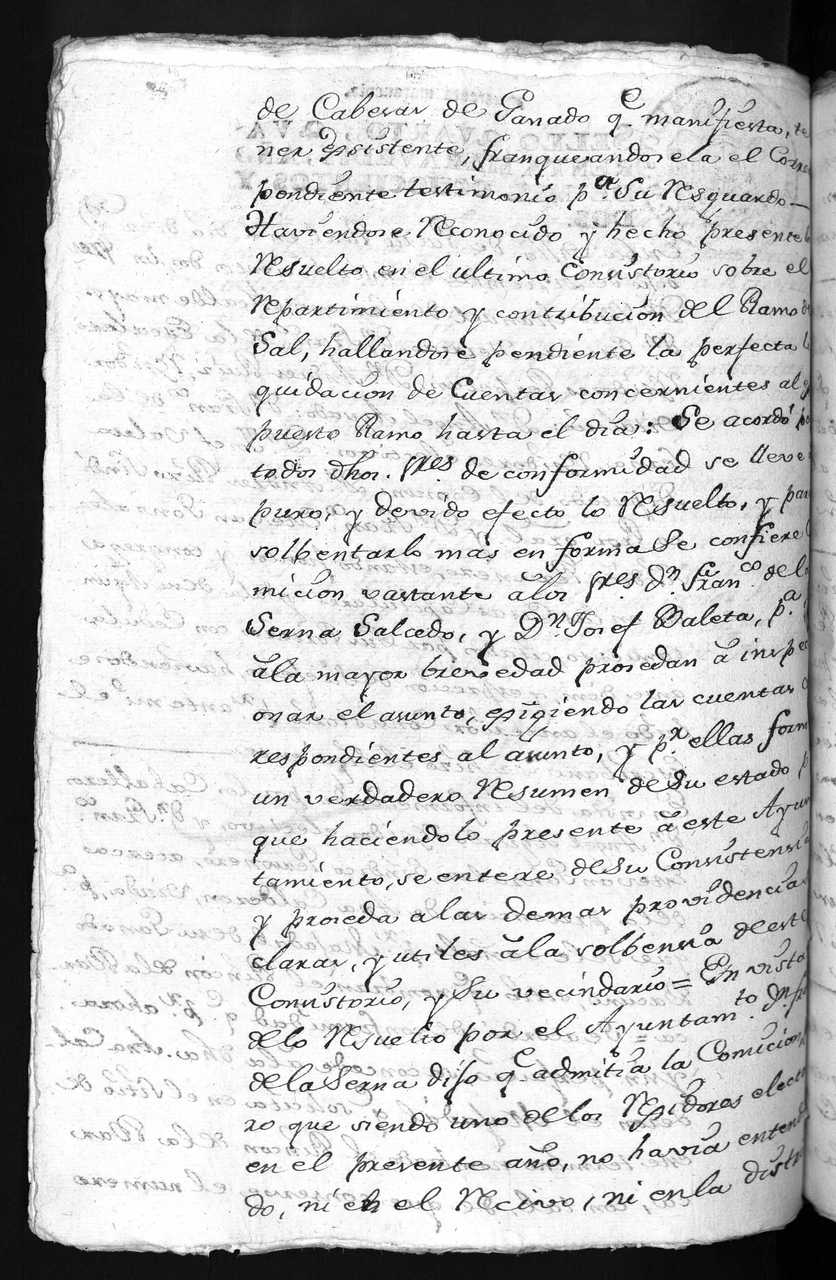 de Caberas de Ganado qe. manifiesta, te
ner Exsistente, franqueandosela el Corres
pendiente testimonio pa. Su Resguardo—
Haviendose Reconocido y hecho presente lo
Resuelto en el ultimo Convistorio sobre el
Repartimiento y contribucion del Ramo de
Sal, hallandose pendiente la perfecta li
quidacion de Cuentas concernientes al
puesto Ramo hasta el dia: Se acordó po
todos dhos. Sres. de conformidad se lleve a
puro, y devido efecto lo Resuelto, y para
solbentarlo mas en forma Se confiere Co
micion vastante alos Sres. Dn. Franco. de la
Serna Salcedo, y Dn. Josef Baleta, pa.
ála mayor brevedad prosedan á inspec
onar el asunto, exigiendo las cuentas co
respondientes al asunto, y pr. ellas forme
un verdadero Resumen de Su estado p
que haciendolo presente á este Ayun
tamiento, se entere de su Consistensia
y proseda alas demas providencias
claras, y utiles ála solbensia de este
Convistorio, y Su vecindario = En vista
delo Resuelto por el Ayuntamto. Dn. Fr
dela Serna diso qe. admitia la Comicion, pe
ro que siendo uno de los Regidores electo
en el presente año, no havia entendi
do, ni en el Recivo, ni en la distri